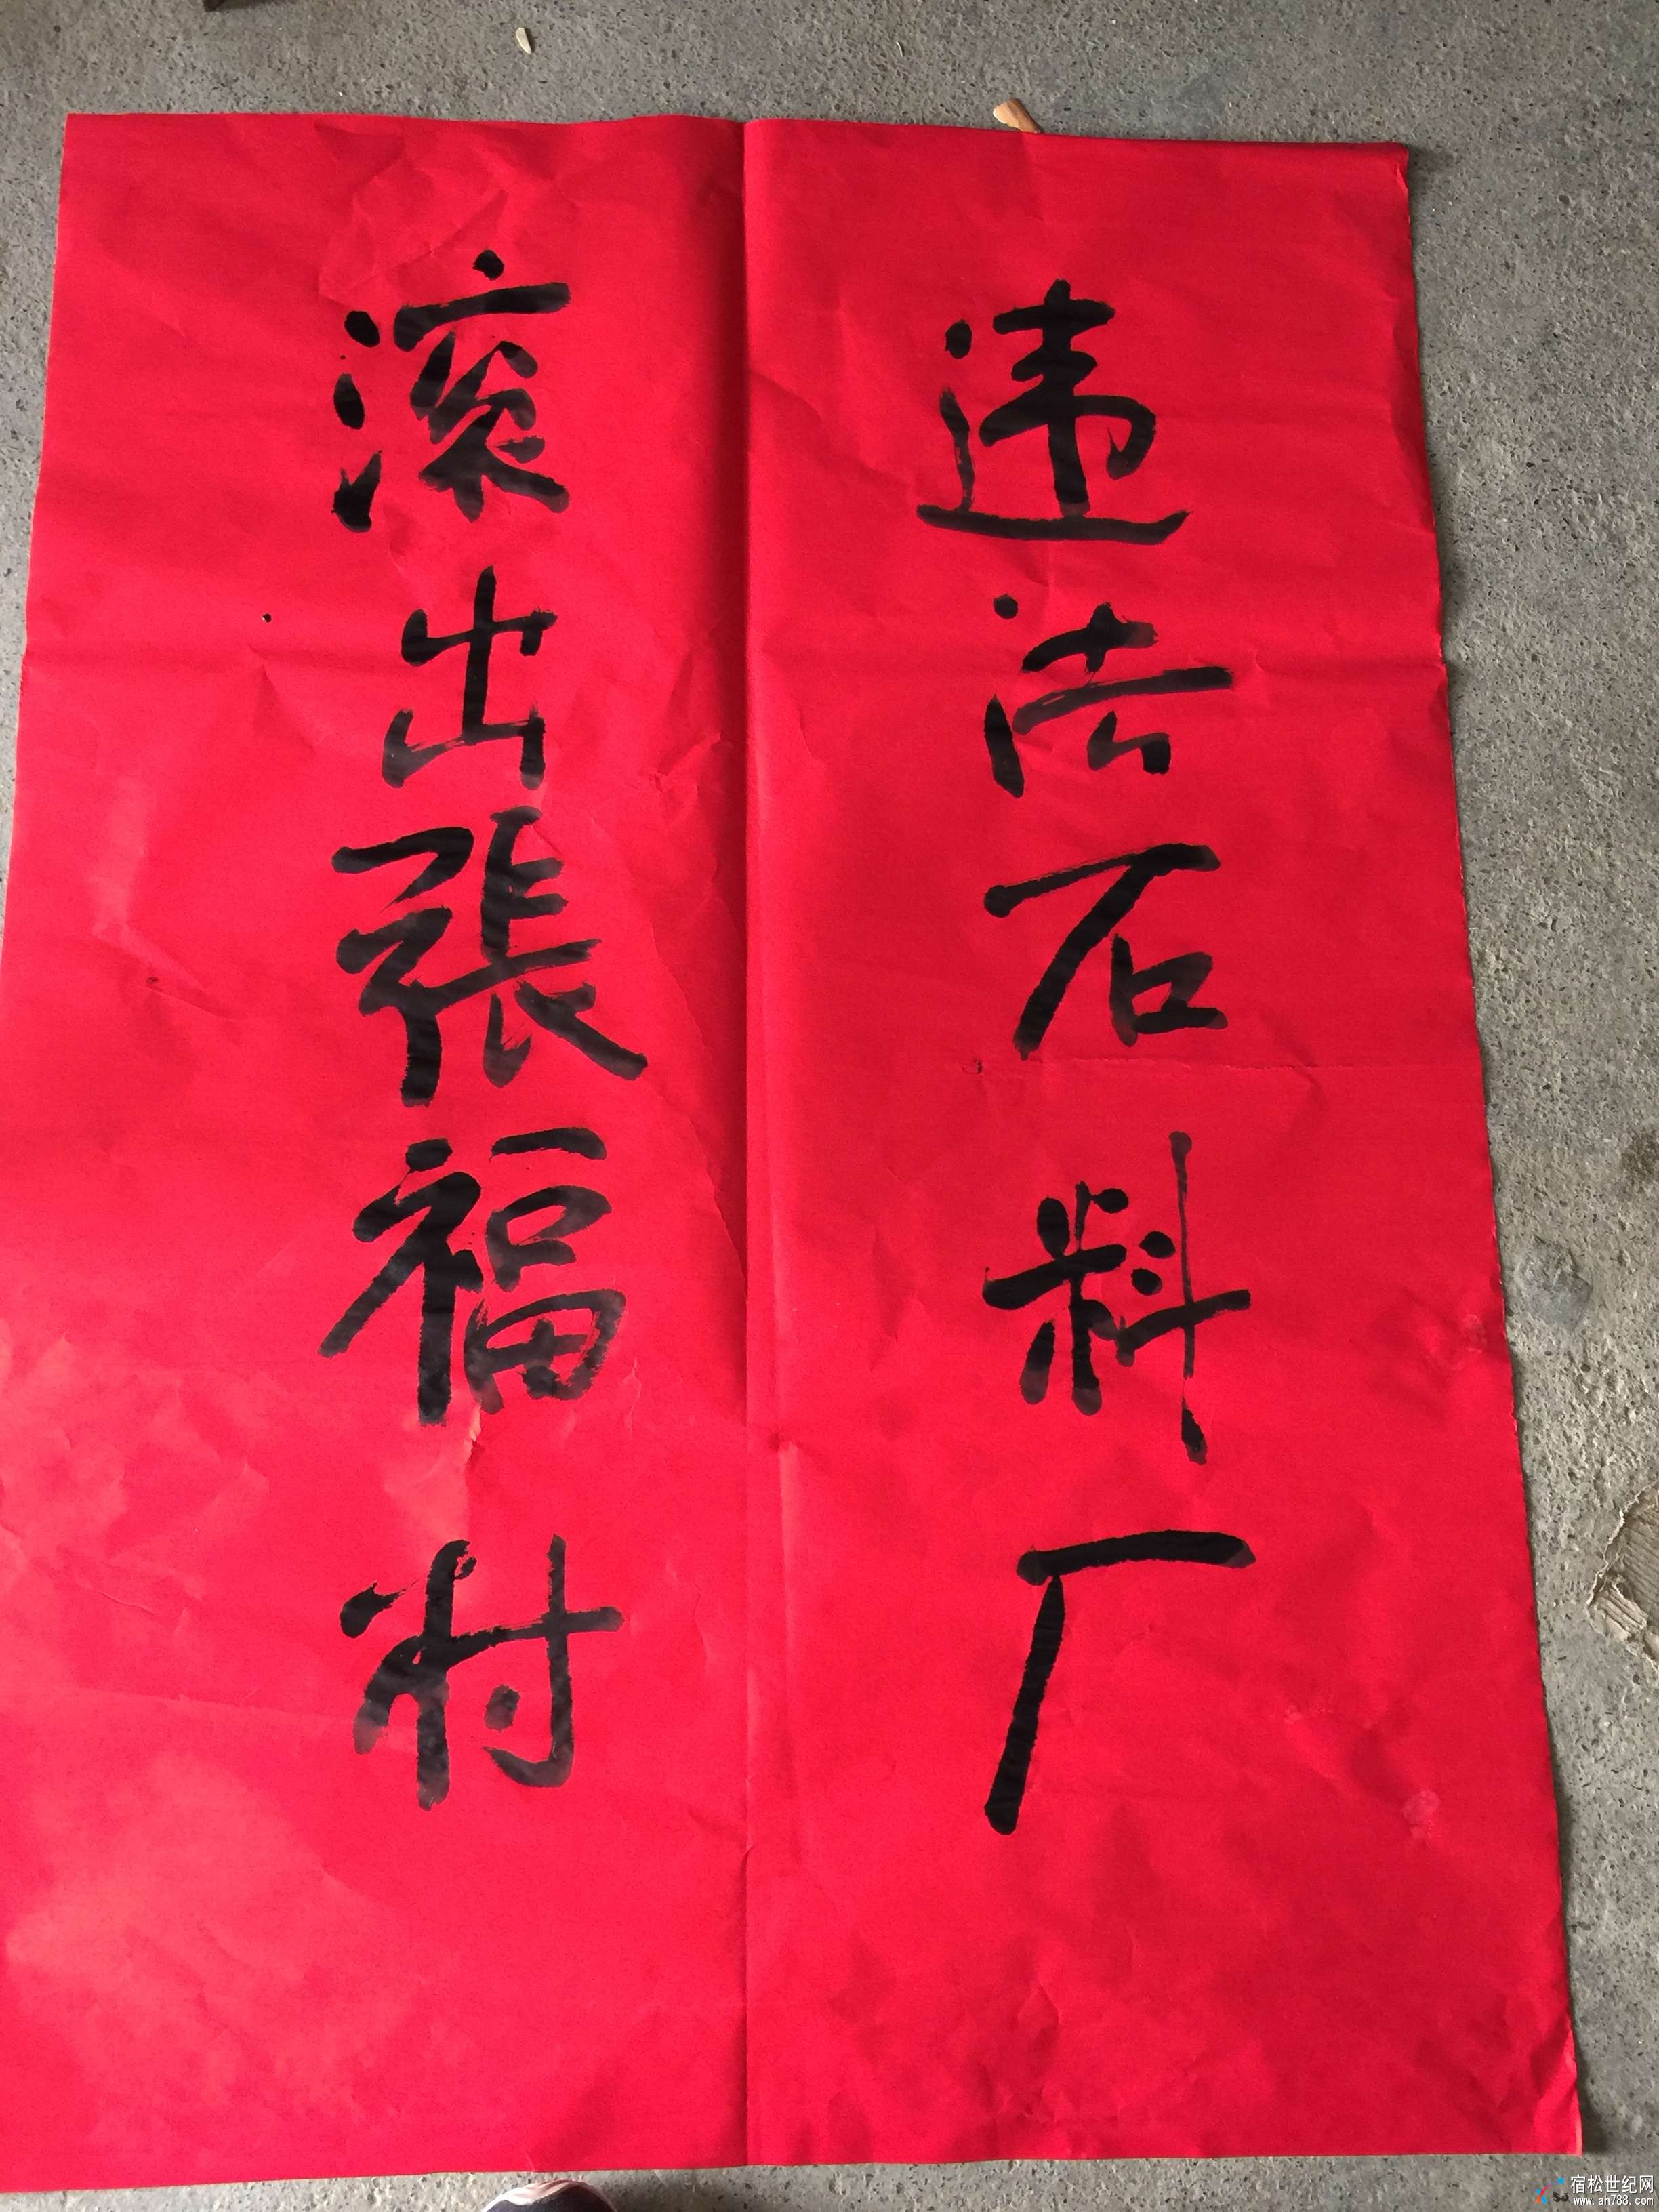 违法石料厂
滚出張福村
宿松世纪网
www.ah788.com